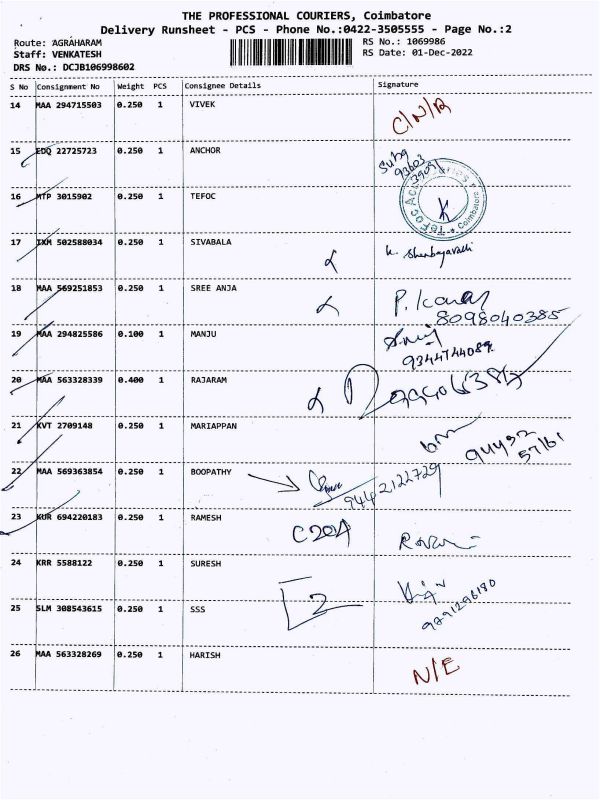 THE PROFESSIONAL COURIERS, Coimbatore
Delivery Runsheet - PCS - Phone No.:0422-3505555 - Page No.:2
Route: AGRAHARAM
RS No.: 1069986
Staff: VENKATESH
RS Date: 01-Dec-2022
DRS No.: DCJB106998602
S No Consignment No Weight PCS Consignee Details Signature
14 MAA 294715503 0.250 1 VIVEK C/N/R
15 EDQ 22725723 0.250 1 ANCHOR Suba 93603
16 MTP 3015902 0.250 1 TEFOC K Coimbatore
17 IXM 502588034 0.250 1 SIVABALA K. Shenbagavalli
18 MAA 569251853 0.250 1 SREE ANJA P. Kumar
8098040385
19 MAA 294825586 0.100 1 MANJU
9344744089
20 MAA 563328339 0.400 1 RAJARAM
21 KVT 2709148 0.250 1 MARIAPPAN 94432
57161
22 MAA 569363854 0.250 1 BOOPATHY 9442122729
23 KUR 694220183 0.250 1 RAMESH
24 KRR 5588122 0.250 1 SURESH
25 SLM 308543615 0.250 1 SSS 2 9791296180
26 MAA 563328269 0.250 1 HARISH N/E